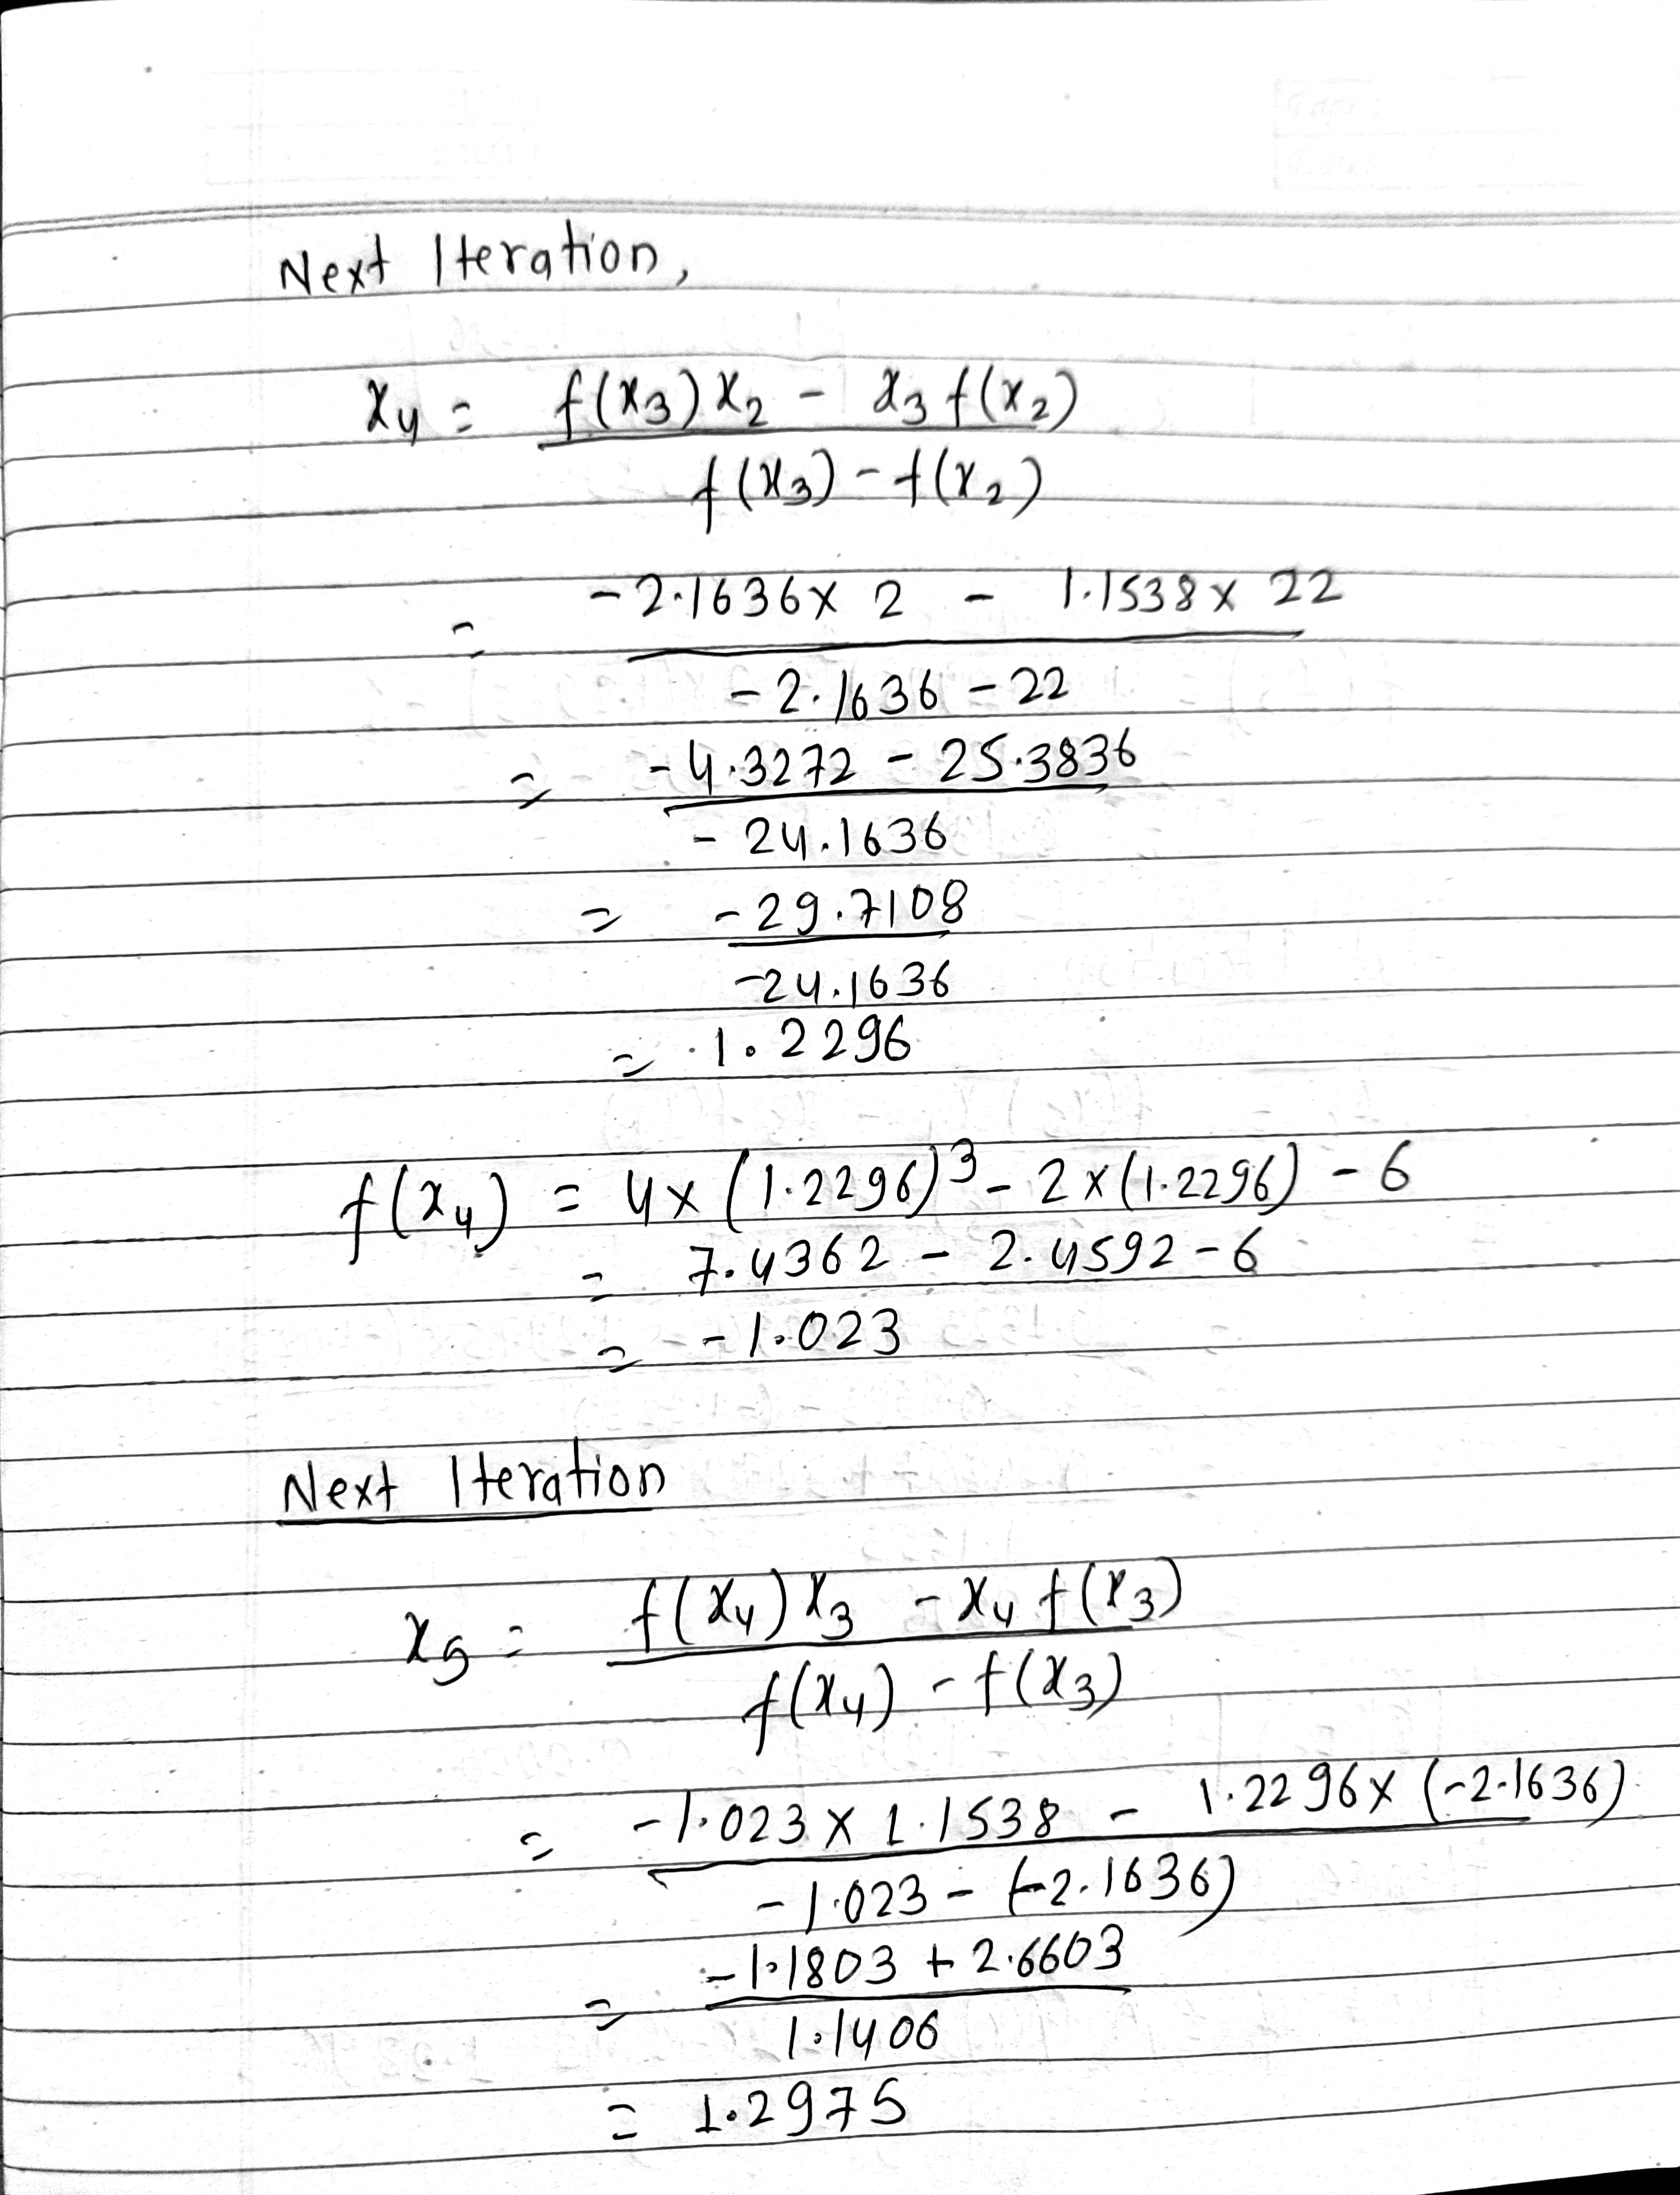 Next Iteration,
x₄ = f(x₃)x₂ - x₃f(x₂)
f(x₃) - f(x₂)
= -2.1636 × 2 - 1.1538 × 22
-2.1636 - 22
= -4.3272 - 25.3836
-24.1636
= -29.7108
-24.1636
= 1.2296
f(x₄) = 4 × (1.2296)³ - 2 × (1.2296) - 6
= 7.4362 - 2.4592 - 6
= -1.023
Next Iteration
x₅ = f(x₄)x₃ - x₄f(x₃)
f(x₄) - f(x₃)
= -1.023 × 1.1538 - 1.2296 × (-2.1636)
-1.023 - (-2.1636)
= -1.1803 + 2.6603
1.1406
= 1.2975